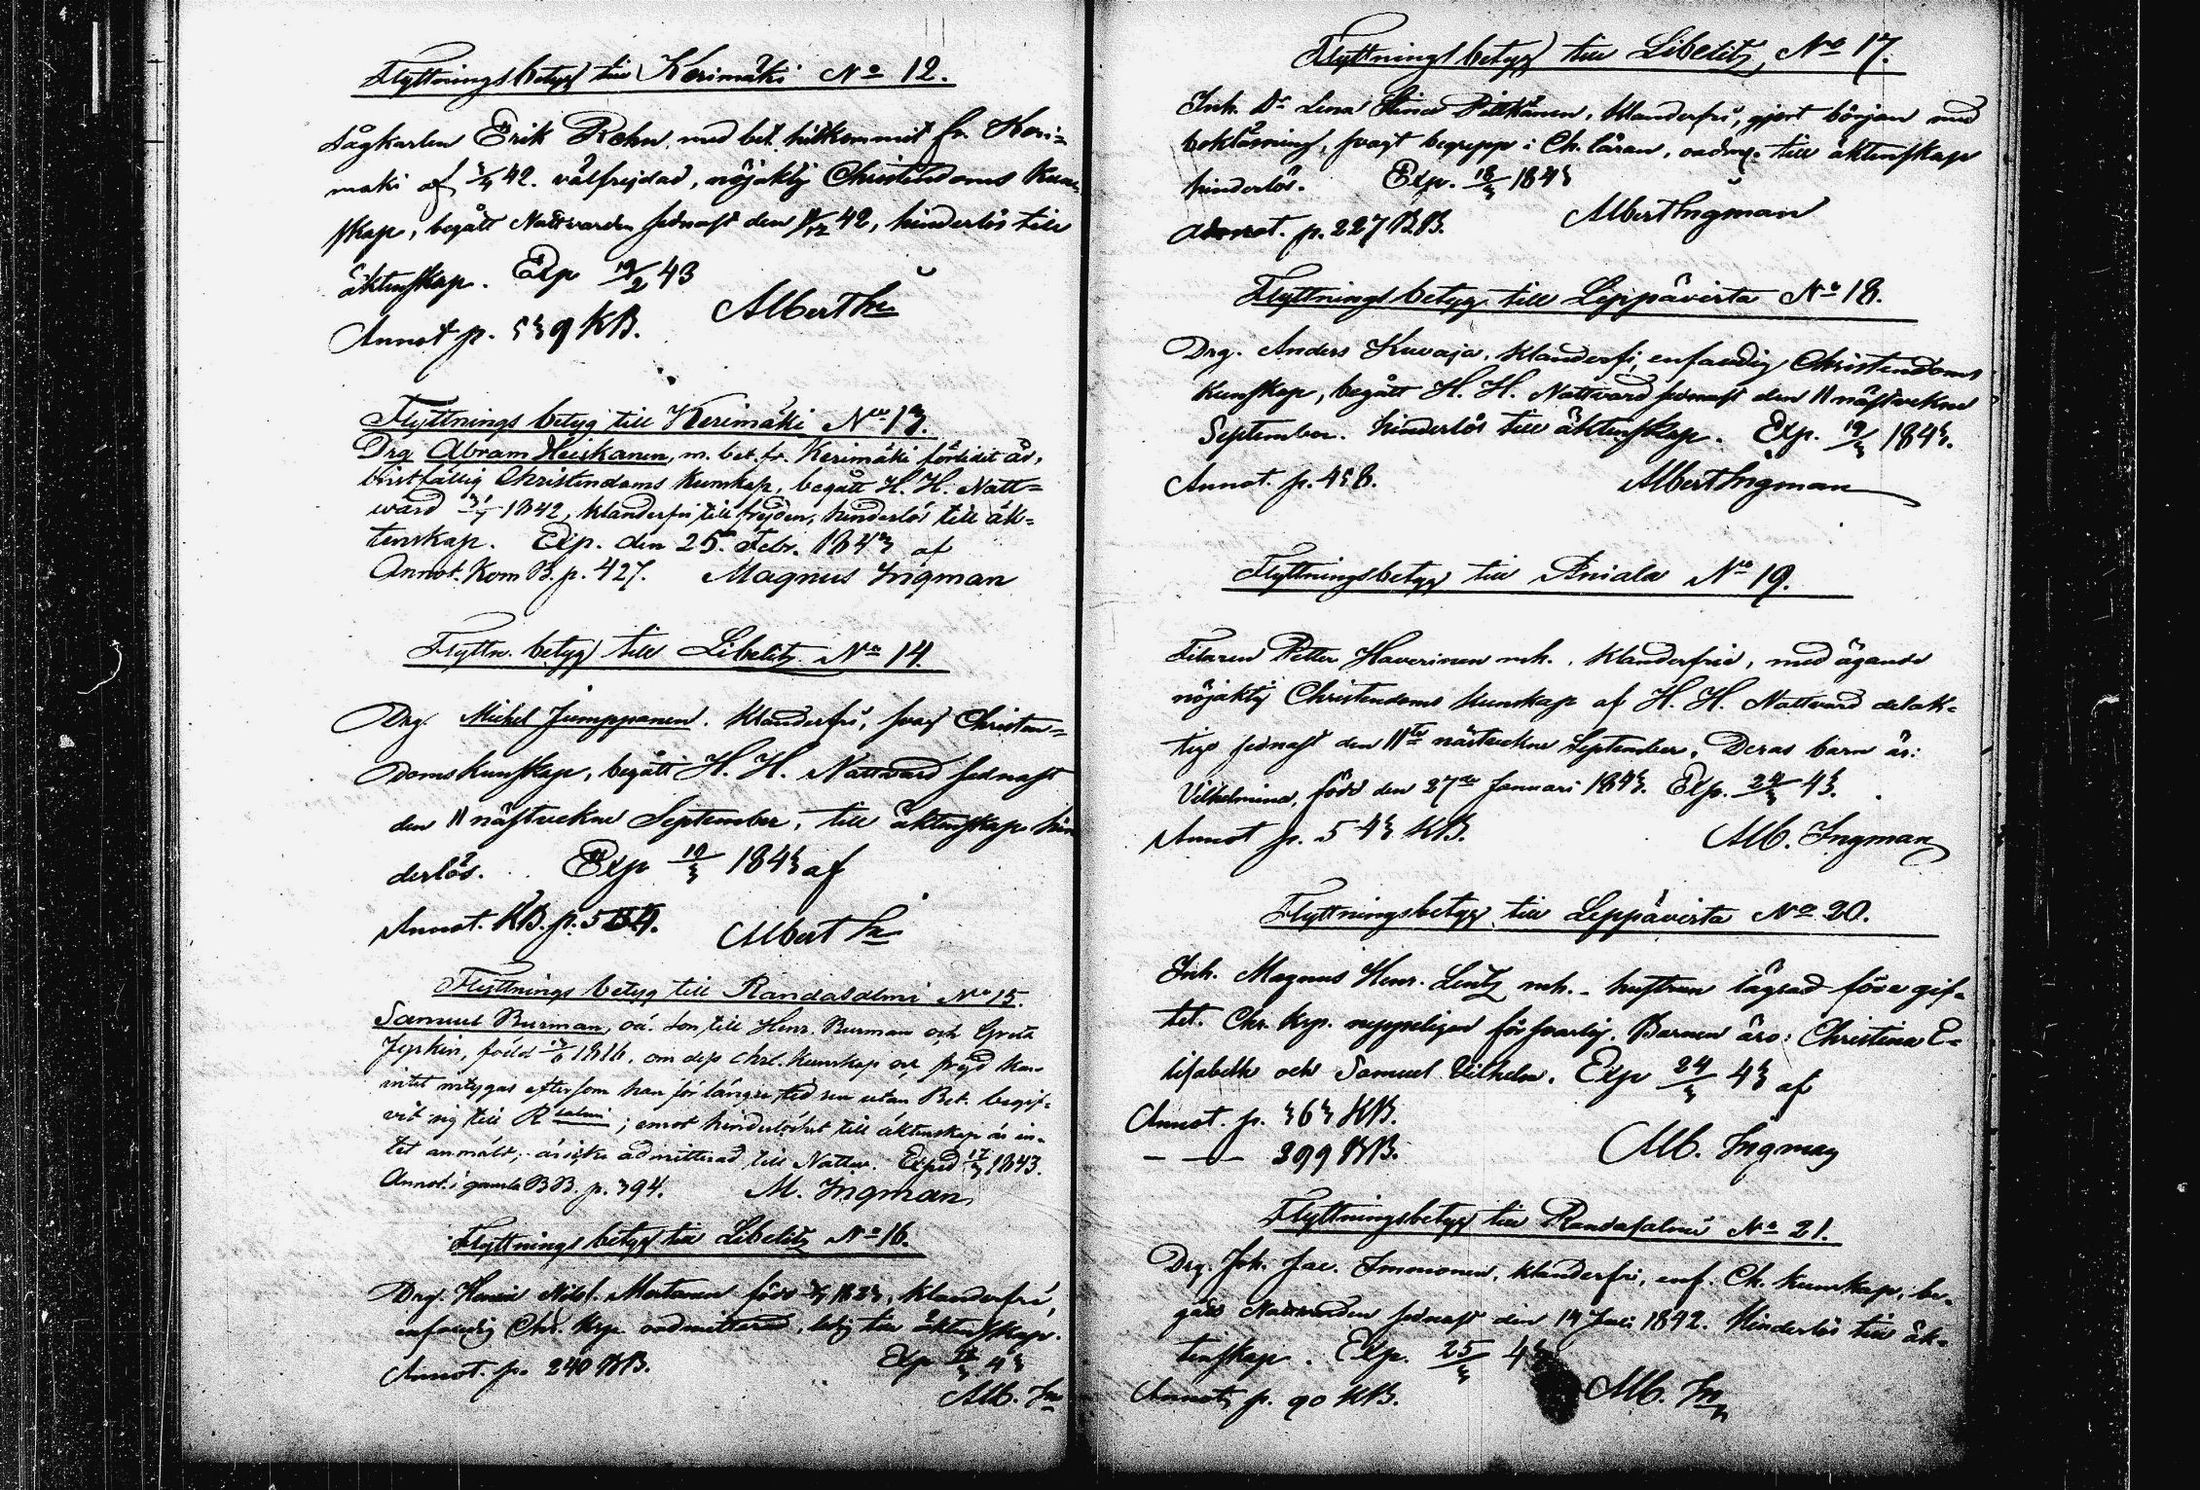 Flyttningsbetyg till Kerimäki No 12.
Sågkarlen Erik Rehn, med bet. hitkommit fr. Keri=
mäki af 42. välfrejdad, nöjaktig Christendoms Kun=
skap, begått Nattvarden sednast den 42, hinderlös till
äktenskap. Exp 19/2 43
Annot p. 539 KB. Albert In
Flyttnings betyg till Kerimäki No 13.
Drg Abram Heiskanen, m. bet. fr. Kerimäki förlidit år,
bristfällig Christendoms Kunskap, begått H. H. Natt=
ward 1842, klanderfri till frejden, hinderlös till äk=
tenskap. Exp. den 25. Febr. 1843 af
Annot. Kom B. p. 427. Magnus Ingman
Flyttn. betyg till Libelitz No 14.
Drg. Michel Jumppanen. Klanderfri, svag Christen=
doms kunskap, begått H. H. Nattvard sednast
den 11 nästvekne September, till äktenskap hin
derlös. Exp 10/3 1843 af
Annot. KB. p. Albert In
Flyttnings betyg till Randasalmi No 15.
Samuel Burman, oä. Son, till Henr. Burman och Greta
född 1816, om dess chr. kunskap och frejd kan
intet intygas eftersom han för längre tid sen utan Bet. begif=
vit sig till R salmi; emot hinderlöshet till äktenskap är in=
tet anmält; är icke admitterad till Nattv. Exped 1843.
Annot. i gamla BB. p. 394. M. Ingman
Flyttnings betyg till Libelitz No 16.
Drg. född klanderfri,
enfaldig Chr. Ksp. oadmitterad, ledig till äktenskap.
Annot. p. 240 BB. Exp 43
Alb. In
Flyttningsbetyg till Libelitz, No 17.
Inh. Dr Lena Stina Pitkänen, klanderfri, gjort början med
bokläsning, svagt begrepp i Ch. läran, oadm. till äktenskap
hinderlös. Exp. 18/3 1843
Annot. p. 227 BB. Albert Ingman
Flyttnings betyg till Leppävirta No 18.
Drg. Anders Kuvaja, klanderfri, enfaldig Christendoms
kunskap, begått H. H. Nattvard sednast den 11 nästvekne
September. hinderlös till äktenskap. Exp. 19/3 1843.
Annot. p. 458. Albert Ingman
Flyttningsbetyg till Aniala No 19.
Petter Haverinen mh., klanderfrie, med ägande
nöjaktig Christendoms kunskap af H. H. Nattvard delak=
tige sednast den 11te nästvekne September. Deras barn är:
Vilhelmina, född den 27de Januari 1843. Exp. 24/3 43.
Annot p. 543 KB. Alb. Ingman
Flyttningsbetyg till Leppävirta No 20.
Inh. Magnus Henr. Lentz mh. - hustrun lägrad före gif=
tet. Chr. Ksp. nyppeligen försvarlig. Barnen äro: Christina E=
lisabeth och Samuel Vilhelm. Exp 24/3 43 af
Annot. p. 363 KB.
— — 399 BB. Alb. Ingman
Flyttningsbetyg till Randasalmi No 21.
Drg. Joh. Jac. Immonen, klanderfri, enf. Ch. kunskap, be=
gått Nattvarden sednast den Juli 1842. Hinderlös till äk=
tenskap. Exp. 25/3 43
Annot p. 90 KB. Alb. In